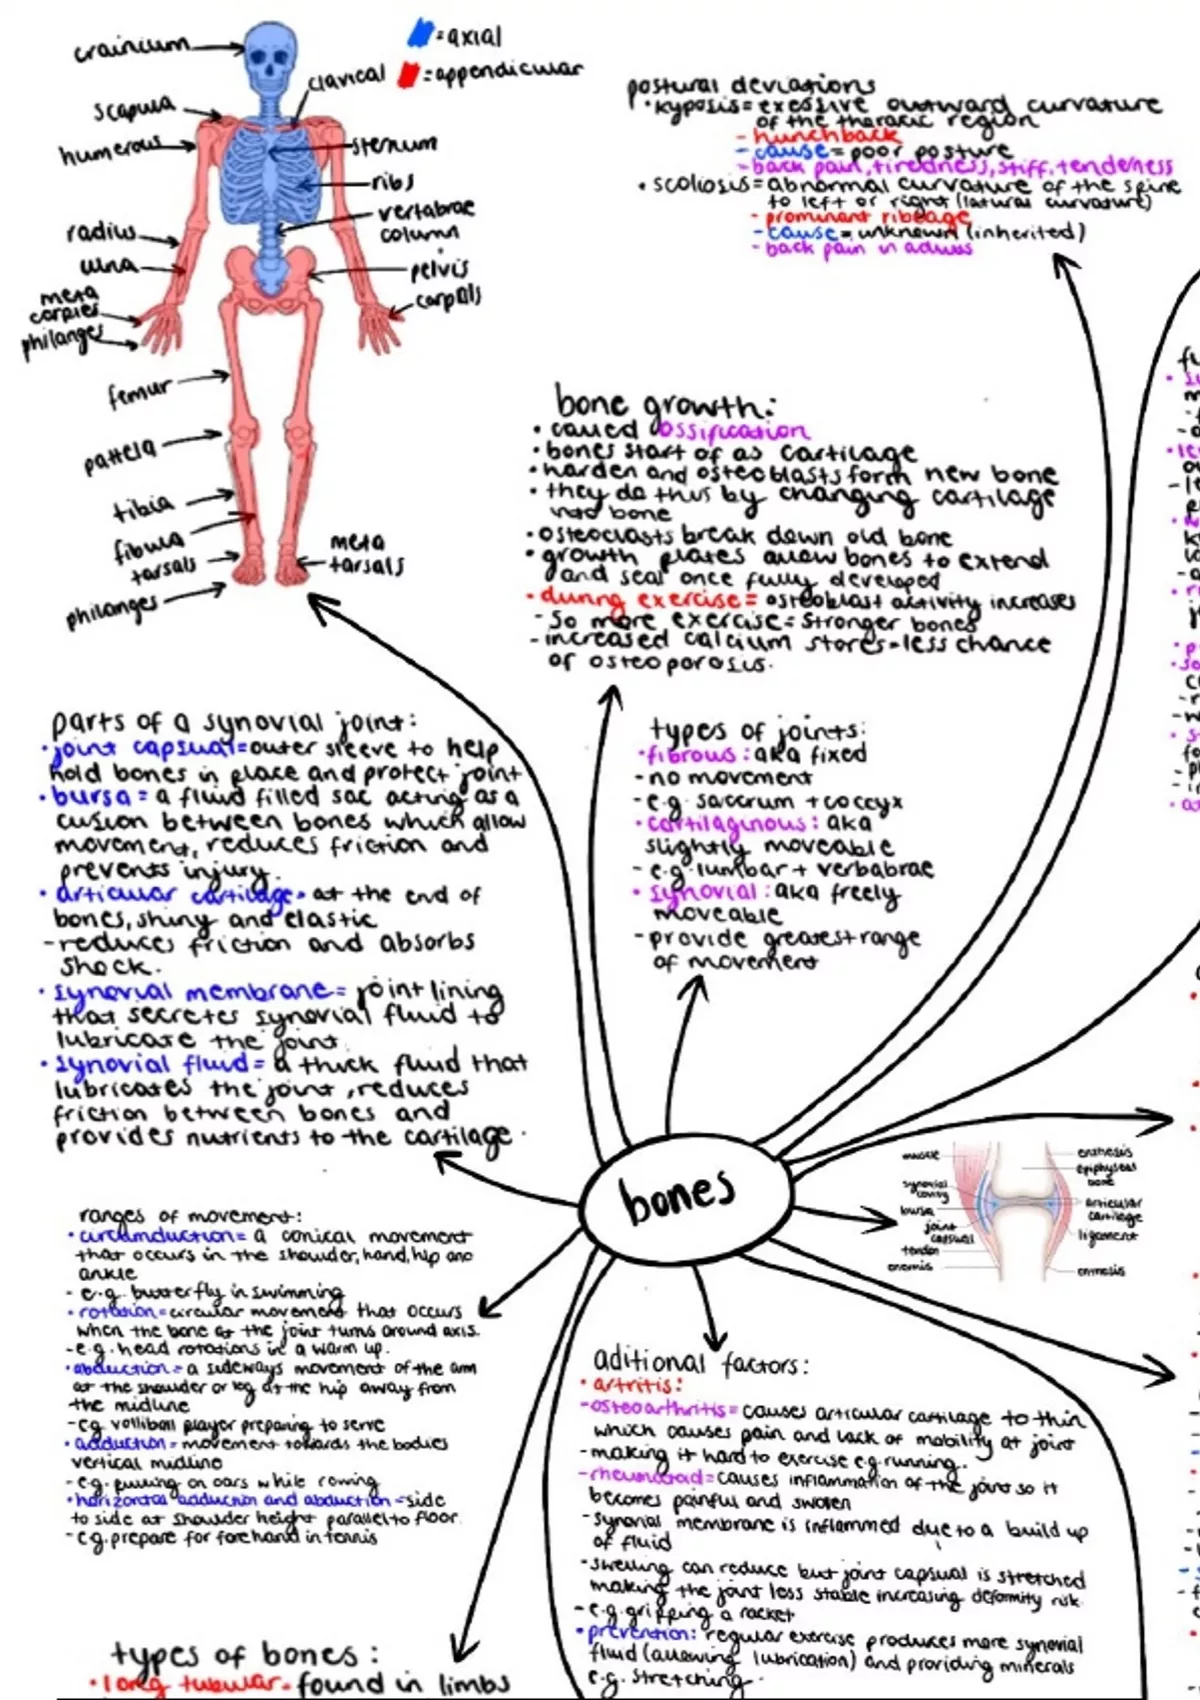 crainium
= axial
= appendicular
clavical
scapula
humerous
sternum
ribs
vertabrae
column
radius
ulna
pelvis
meta
carples
carpals
philanges
femur
pattela
tibia
fibula
tarsals
meta
tarsals
philanges
postural deviations
• kyposis = exessive outward curvature
of the thoracic region
- hunchback
- cause = poor posture
- back pain, tiredness, stiff, tenderness
• scoliosis = abnormal curvature of the spine
to left or right (latural curvature)
- prominant ribcage
- cause = unknown (inherited)
- back pain in adults
bone growth:
• called ossification
• bones start of as cartilage
• harden and osteoblasts form new bone
• they do this by changing cartilage
into bone
• osteoclasts break down old bone
• growth plates allow bones to extend
and seal once fully developed
• during exercise = osteoblast activity increases
- so more exercise = stronger bones
- increased calcium stores = less chance
of osteoporosis.
parts of a synovial joint:
• joint capsual = outer sleeve to help
hold bones in place and protect joint
• bursa = a fluid filled sac acting as a
cusion between bones which allow
movement, reduces friction and
prevents injury.
• articular cartilage = at the end of
bones, shiny and elastic
- reduces friction and absorbs
shock.
• synovial membrane = joint lining
that secretes synovial fluid to
lubricate the joint.
• synovial fluid = a thick fluid that
lubricates the joint, reduces
friction between bones and
provides nutrients to the cartilage.
types of joints:
• fibrous: aka fixed
- no movement
- e.g. saccrum + coccyx
• cartilaginous: aka
slightly moveable
- e.g. lumbar + verbabrae
• synovial: aka freely
moveable
- provide greatest range
of movement
bones
muscle
synovial
cavity
bursa
joint
capsual
tendon
enthesis
epiphyseal
bone
articular
cartilage
ligament
ranges of movement:
• circumduction = a conical movement
that occurs in the shoulder, hand, hip and
ankle
- e.g. butterfly in swimming
• rotation = circular movement that occurs
when the bone at the joint turns around axis.
- e.g. head rotations in a warm up.
• abduction = a sideways movement of the arm
at the shoulder or leg at the hip away from
the midline
- eg volliball player preparing to serve
• adduction = movement towards the bodies
vertical midline
- e.g. pulling on oars while rowing
• horizontal adduction and abduction = side
to side at shoulder height parallel to floor.
- e.g. prepare for forehand in tennis
aditional factors:
• artritis:
- osteoarthritis = causes articular cartilage to thin
which causes pain and lack of mobility at joint
- making it hard to exercise e.g. running..
- rheumatoid = causes inflammation of the joint so it
becomes painful and swolen
- synovial membrane is inflammed due to a build up
of fluid
- swelling can reduce but joint capsual is stretched
making the joint less stable increasing deformity risk.
- e.g. gripping a racket
• prevention: regular exercise produces more synovial
fluid (allowing lubrication) and providing minerals
e.g. stretching.
types of bones:
• long tubular = found in limbs